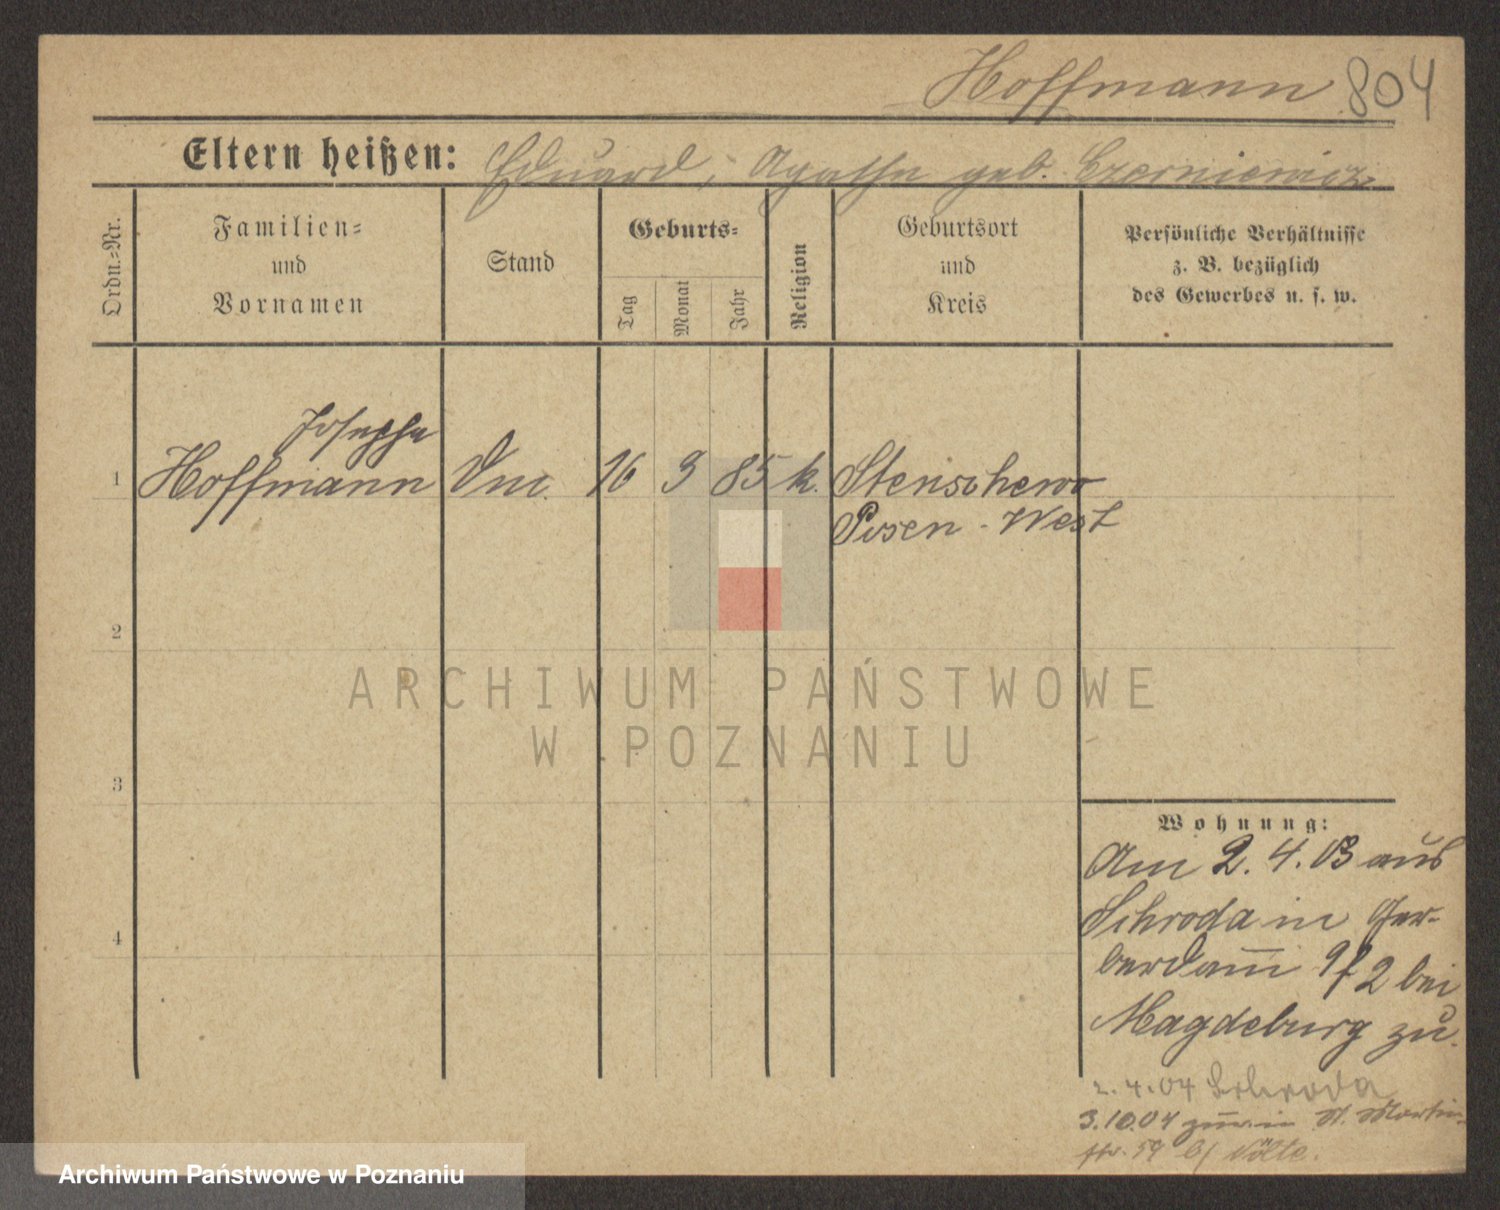 Hoffmann 804
Eltern heißen: Eduard, Agathe geb. Czerniewicz
Ordn.-Nr.
Familien-
und
Vornamen
Stand
Geburts-
Tag
Monat
Jahr
Religion
Geburtsort
und
Kreis
Persönliche Verhältnisse
z. B. bezüglich
des Gewerbes u. s. w.
Josepha
1 Hoffmann 16 3 85 k. Stenschewo
Posen - West
2
ARCHIWUM PAŃSTWOWE
W POZNANIU
3
4
Wohnung:
Am 2. 4. 03 aus
Schroda in Ger-
berdam̅ 9/2 bei
Magdeburg zu.
2. 4. 04 Schroda
3.10.04 St. Martin-
str. 59 b/ Nölte.
Archiwum Państwowe w Poznaniu